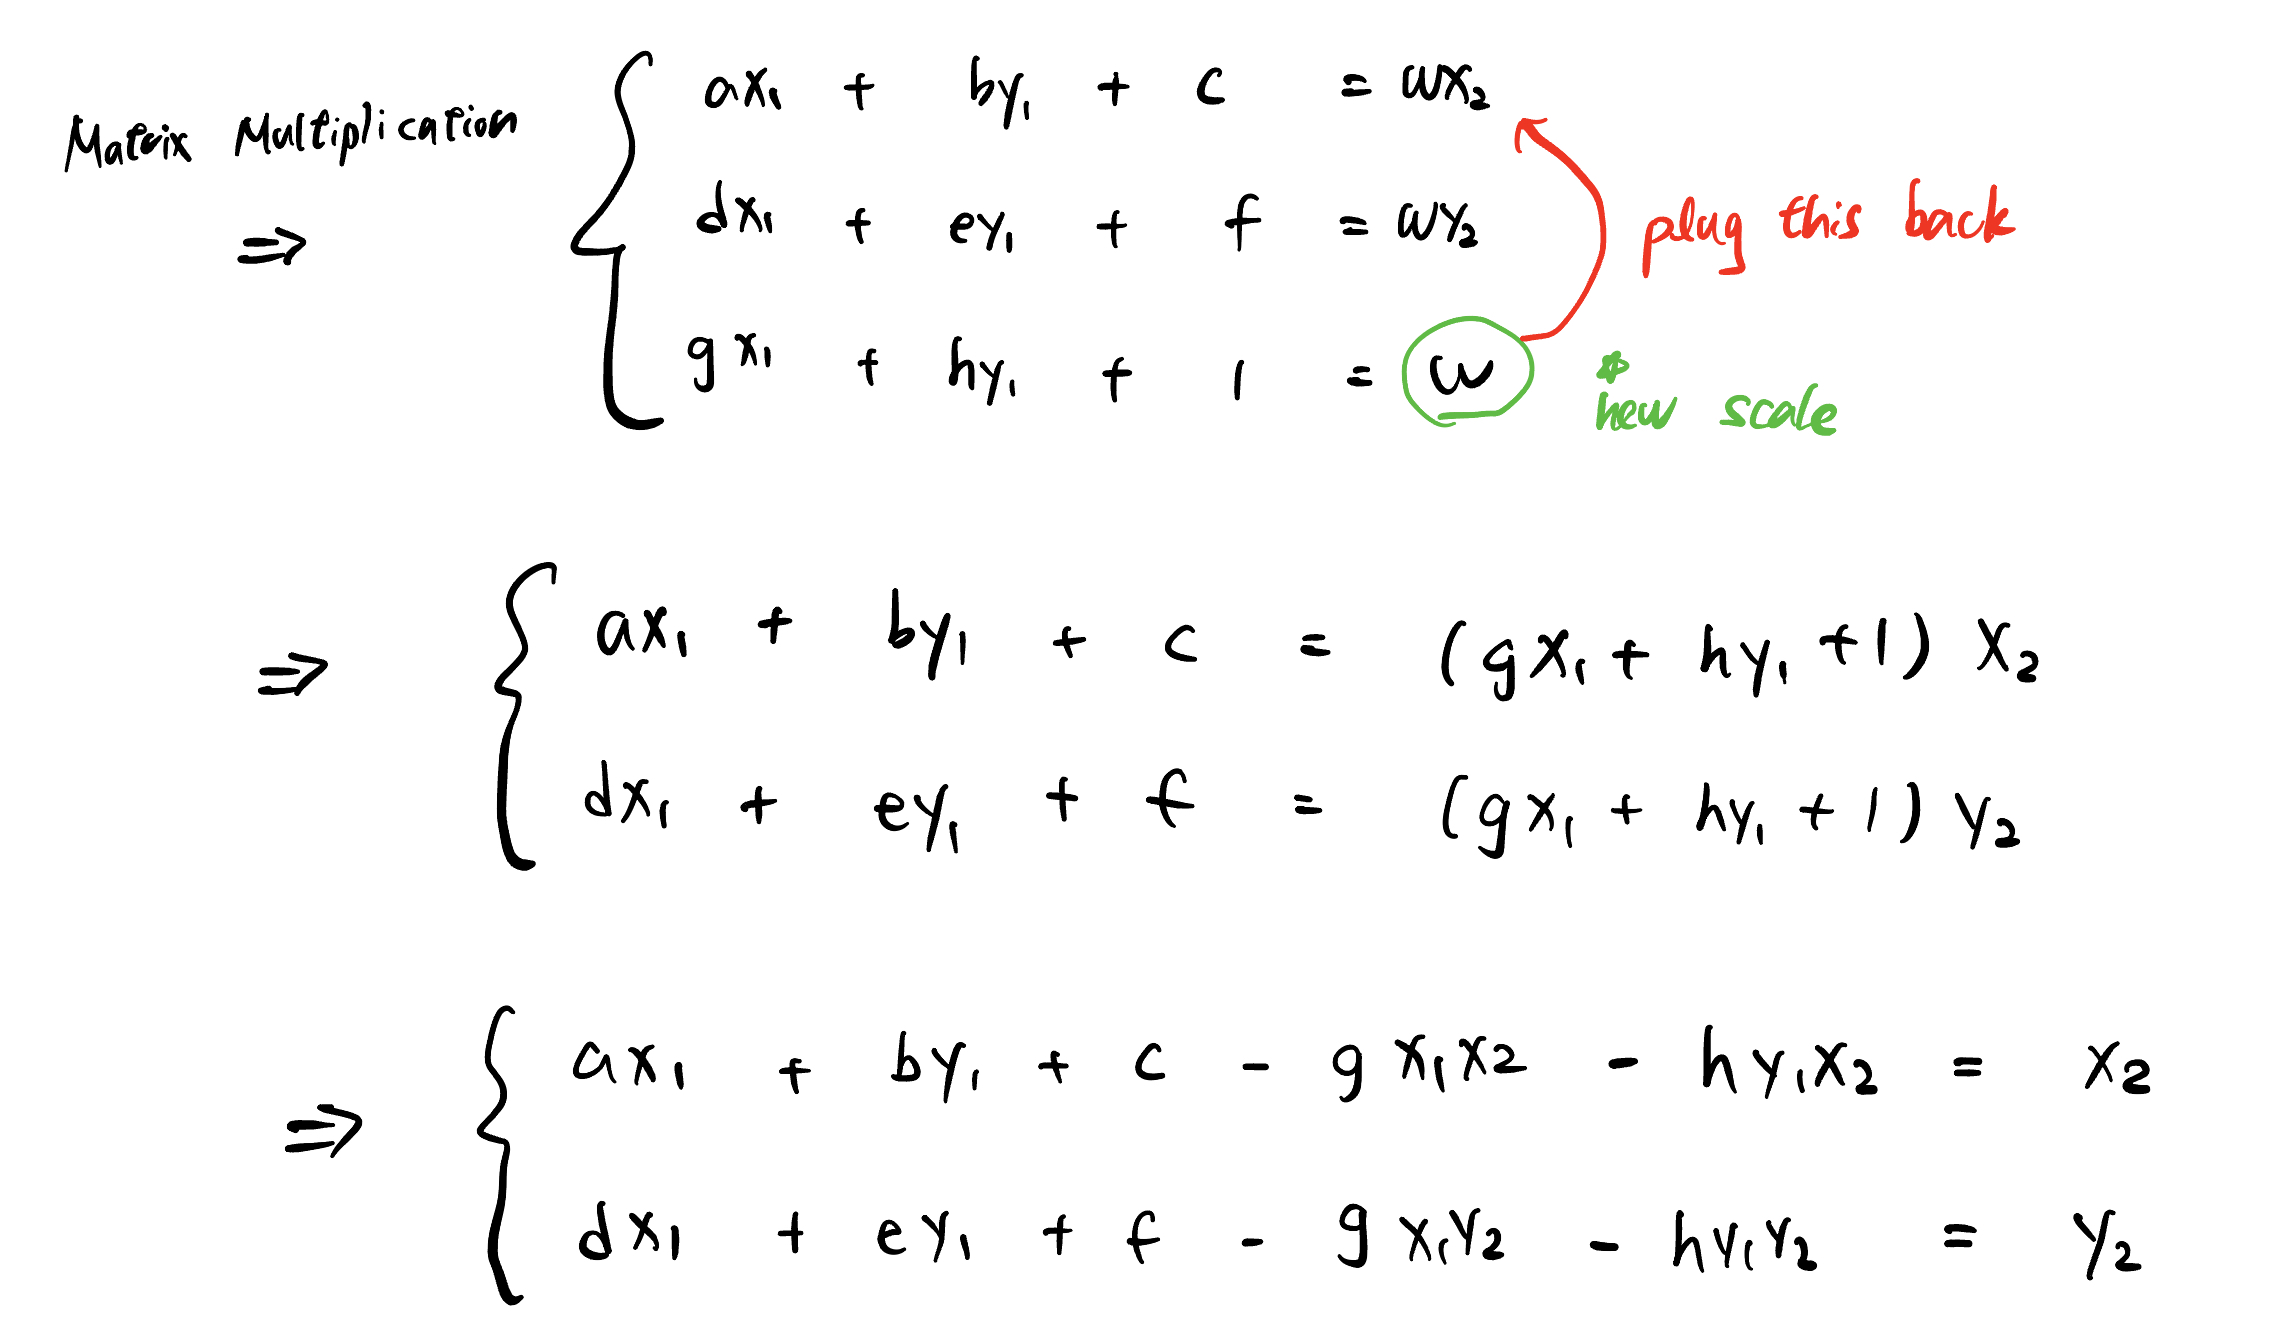 Matrix Multiplication
⇒
ax₁ + by₁ + c = wx₂
dx₁ + ey₁ + f = wy₂
plug this back
gx₁ + hy₁ + 1 = w
* new scale
⇒
ax₁ + by₁ + c = (gx₁ + hy₁ + 1) x₂
dx₁ + ey₁ + f = (gx₁ + hy₁ + 1) y₂
⇒
ax₁ + by₁ + c - gx₁x₂ - hy₁x₂ = x₂
dx₁ + ey₁ + f - gx₁y₂ - hy₁y₂ = y₂